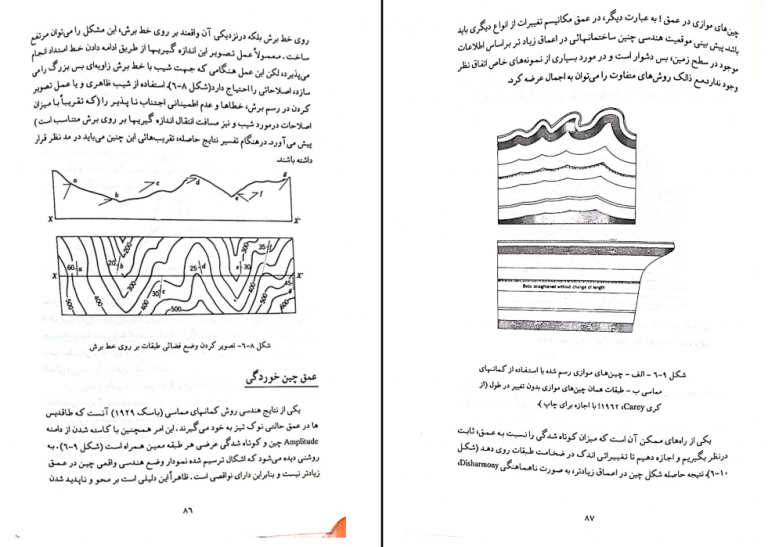 روی خط برش بلکه درنزدیکی آن واقعند بر روی خط برش، این مشکل را می‌توان مرتفع
ساخت. معمولاً عمل تصویر این اندازه گیریها از طریق ادامه دادن خط امتداد انجام
می‌پذیرد، لکن این عمل هنگامی که جهت شیب با خط برش زاویه‌ای بس بزرگ را می
سازد، اصلاحاتی را احتیاج دارد (شکل ۸-۶). استفاده از شیب ظاهری و یا عمل تصویر
کردن در رسم برش، خطاها و عدم اطمینانی اجتناب نا پذیر را (که تقریباً با میزان
اصلاحات درمورد شیب و نیز مسافت انتقال اندازه گیریها بر روی برش متناسب است)
پیش می آورد. درهنگام تفسیر نتایج حاصله، تقریب‌هائی این چنین می‌باید در مد نظر قرار
داشته باشند.
a b c d e f g
X X'
60 a 20 b 25 d 30 c e 30 35 f 45 g
200 300 400 500 400 300 300 400 500 400 500 600
X X'
شکل ۸-۶- تصویر کردن وضع فضائی طبقات بر روی خط برش
عمق چین خوردگی
یکی از نتایج هندسی روش کمانهای مماسی (باسک ۱۹۲۹) آنست که طاقدیس
ها در عمق حالتی نوک تیز به خود می‌گیرند. این امر همچنین با کاسته شدن از دامنه
Amplitude چین و کوتاه شدگی عرضی هر طبقه معین همراه است (شکل ۹-۶). به
روشنی دیده می‌شود که اشکال ترسیم شده نمودار وضع هندسی واقعی چین در عمق
زیادتر نیست و بنابراین دارای نواقصی است. ظاهراً این دلیلی است بر محو و ناپدید شدن
۸۶
چین‌های موازی در عمق؛ به عبارت دیگر، در عمق مکانیسم تغییرات از انواع دیگری باید
باشد. پیش بینی موقعیت هندسی چنین ساختمانهائی در اعماق زیاد تر براساس اطلاعات
موجود در سطح زمین، بس دشوار است و در مورد بسیاری از نمونه‌های خاص اتفاق نظر
وجود ندارد. مع ذالک روش‌های متفاوت را می‌توان به اجمال عرضه کرد.
Beds straightened without change of length
شکل ۹-۶ - الف - چین‌های موازی رسم شده با استفاده از کمانهای
مماسی ب - طبقات همان چین‌های موازی بدون تغییر در طول (از
کری Carey، ۱۹۶۲؛ با اجازه برای چاپ).
یکی از راه‌های ممکن آن است که میزان کوتاه شدگی را نسبت به عمق، ثابت
درنظر بگیریم و اجازه دهیم تا تغییراتی اندک در ضخامت طبقات روی دهد (شکل
۱۰-۶). نتیجه حاصله شکل چین در اعماق زیادتر، به صورت ناهماهنگی Disharmony،
۸۷